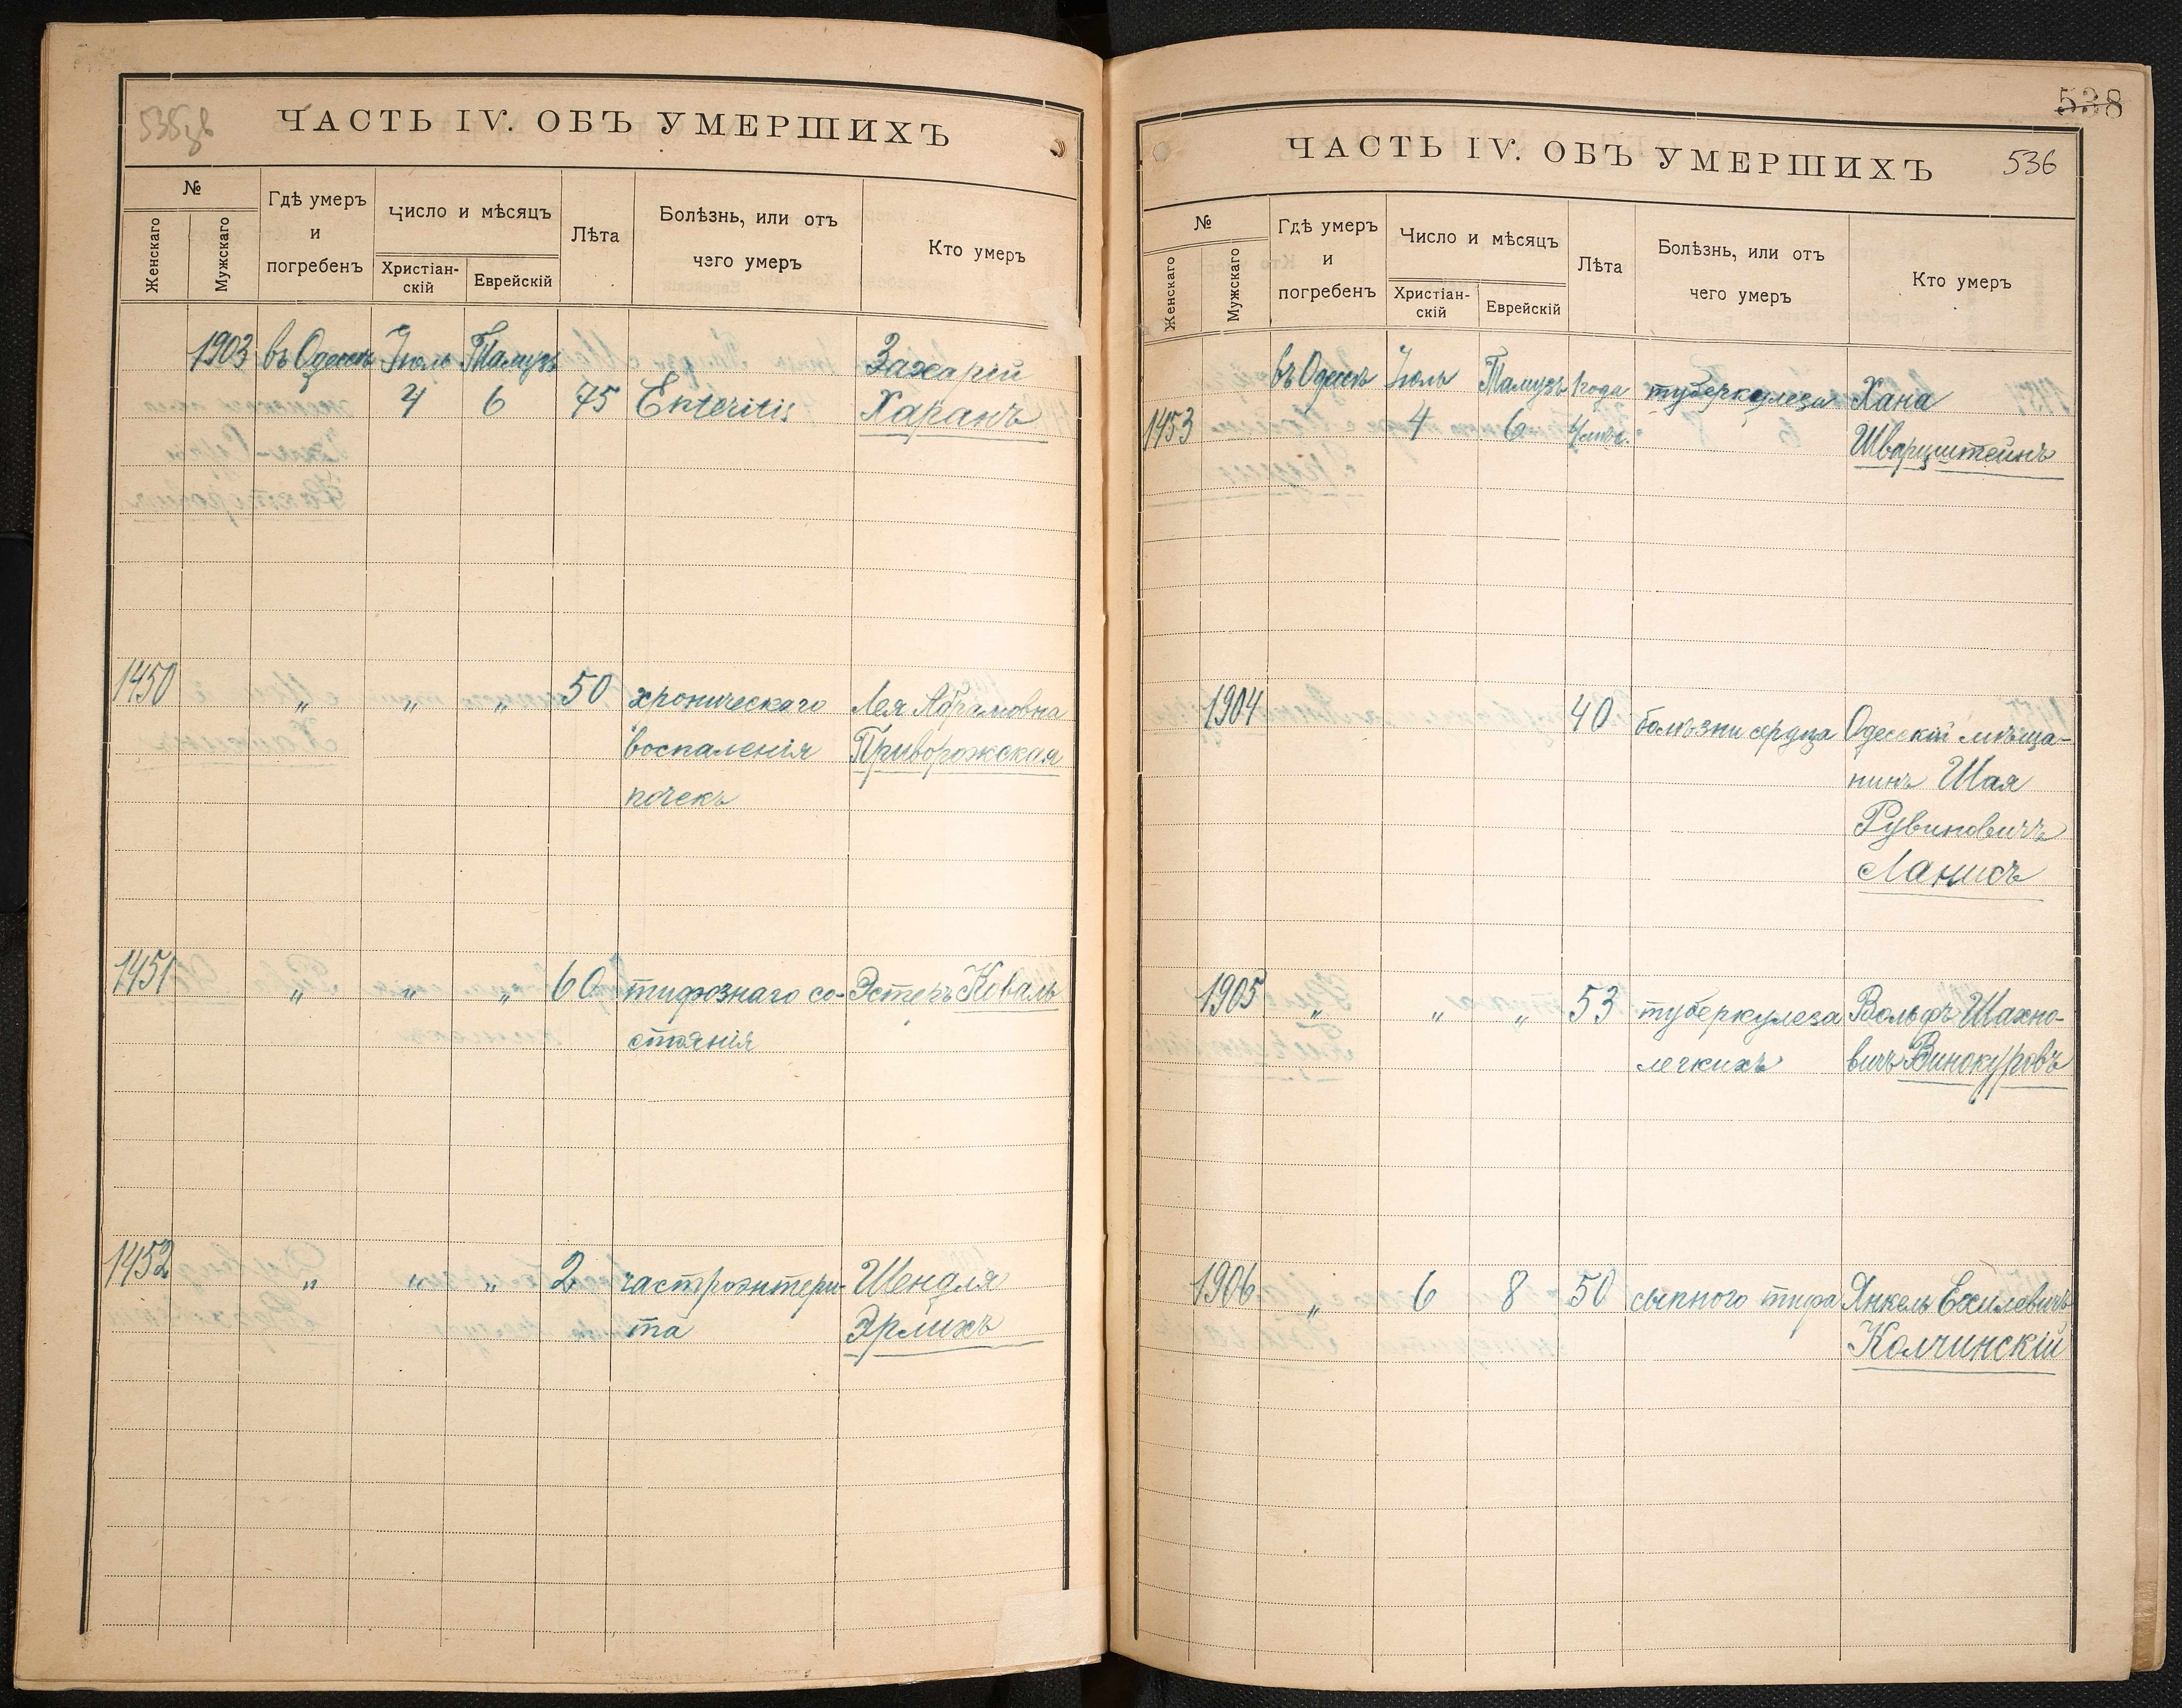 535 зв
ЧАСТЬ IV. ОБЪ УМЕРШИХЪ
№
Женскаго
Мужскаго
Гдѣ умеръ
и
погребенъ
Число и мѣсяцъ
Христіан-
скій
Еврейскій
Лѣта
Болѣзнь, или отъ
чего умеръ
Кто умеръ
1903 въ Одессѣ Іюль Тамузъ Захарій
4 6 45 Enteritis Харанъ
1450 " " " 50 хроническаго Лея Абрамовна
воспаленія Приворожская
почекъ
1451 " " " 60 тифознаго со- Эстеръ Коваль
стоянія
1452 " " " 2 гастроэнтери- Шендля
та Эрлихъ
538
536
ЧАСТЬ IV. ОБЪ УМЕРШИХЪ
№
Женскаго
Мужскаго
Гдѣ умеръ
и
погребенъ
Число и мѣсяцъ
Христіан-
скій
Еврейскій
Лѣта
Болѣзнь, или отъ
чего умеръ
Кто умеръ
въ Одессѣ Іюль Тамузъ 1 года туберкулеза Хана
1453 4 6 4 мѣс. Шварцштейнъ
1904 40 болѣзни сердца Одесскій мѣща-
нинъ Шая
Рувиновичъ
Ланисъ
1905 " " " 53 туберкулеза Вольфъ Шахно-
легкихъ вичъ Винокуровъ
1906 " 6 8 50 сыпного тифа Янкель Ехилевичъ
Колчинскій